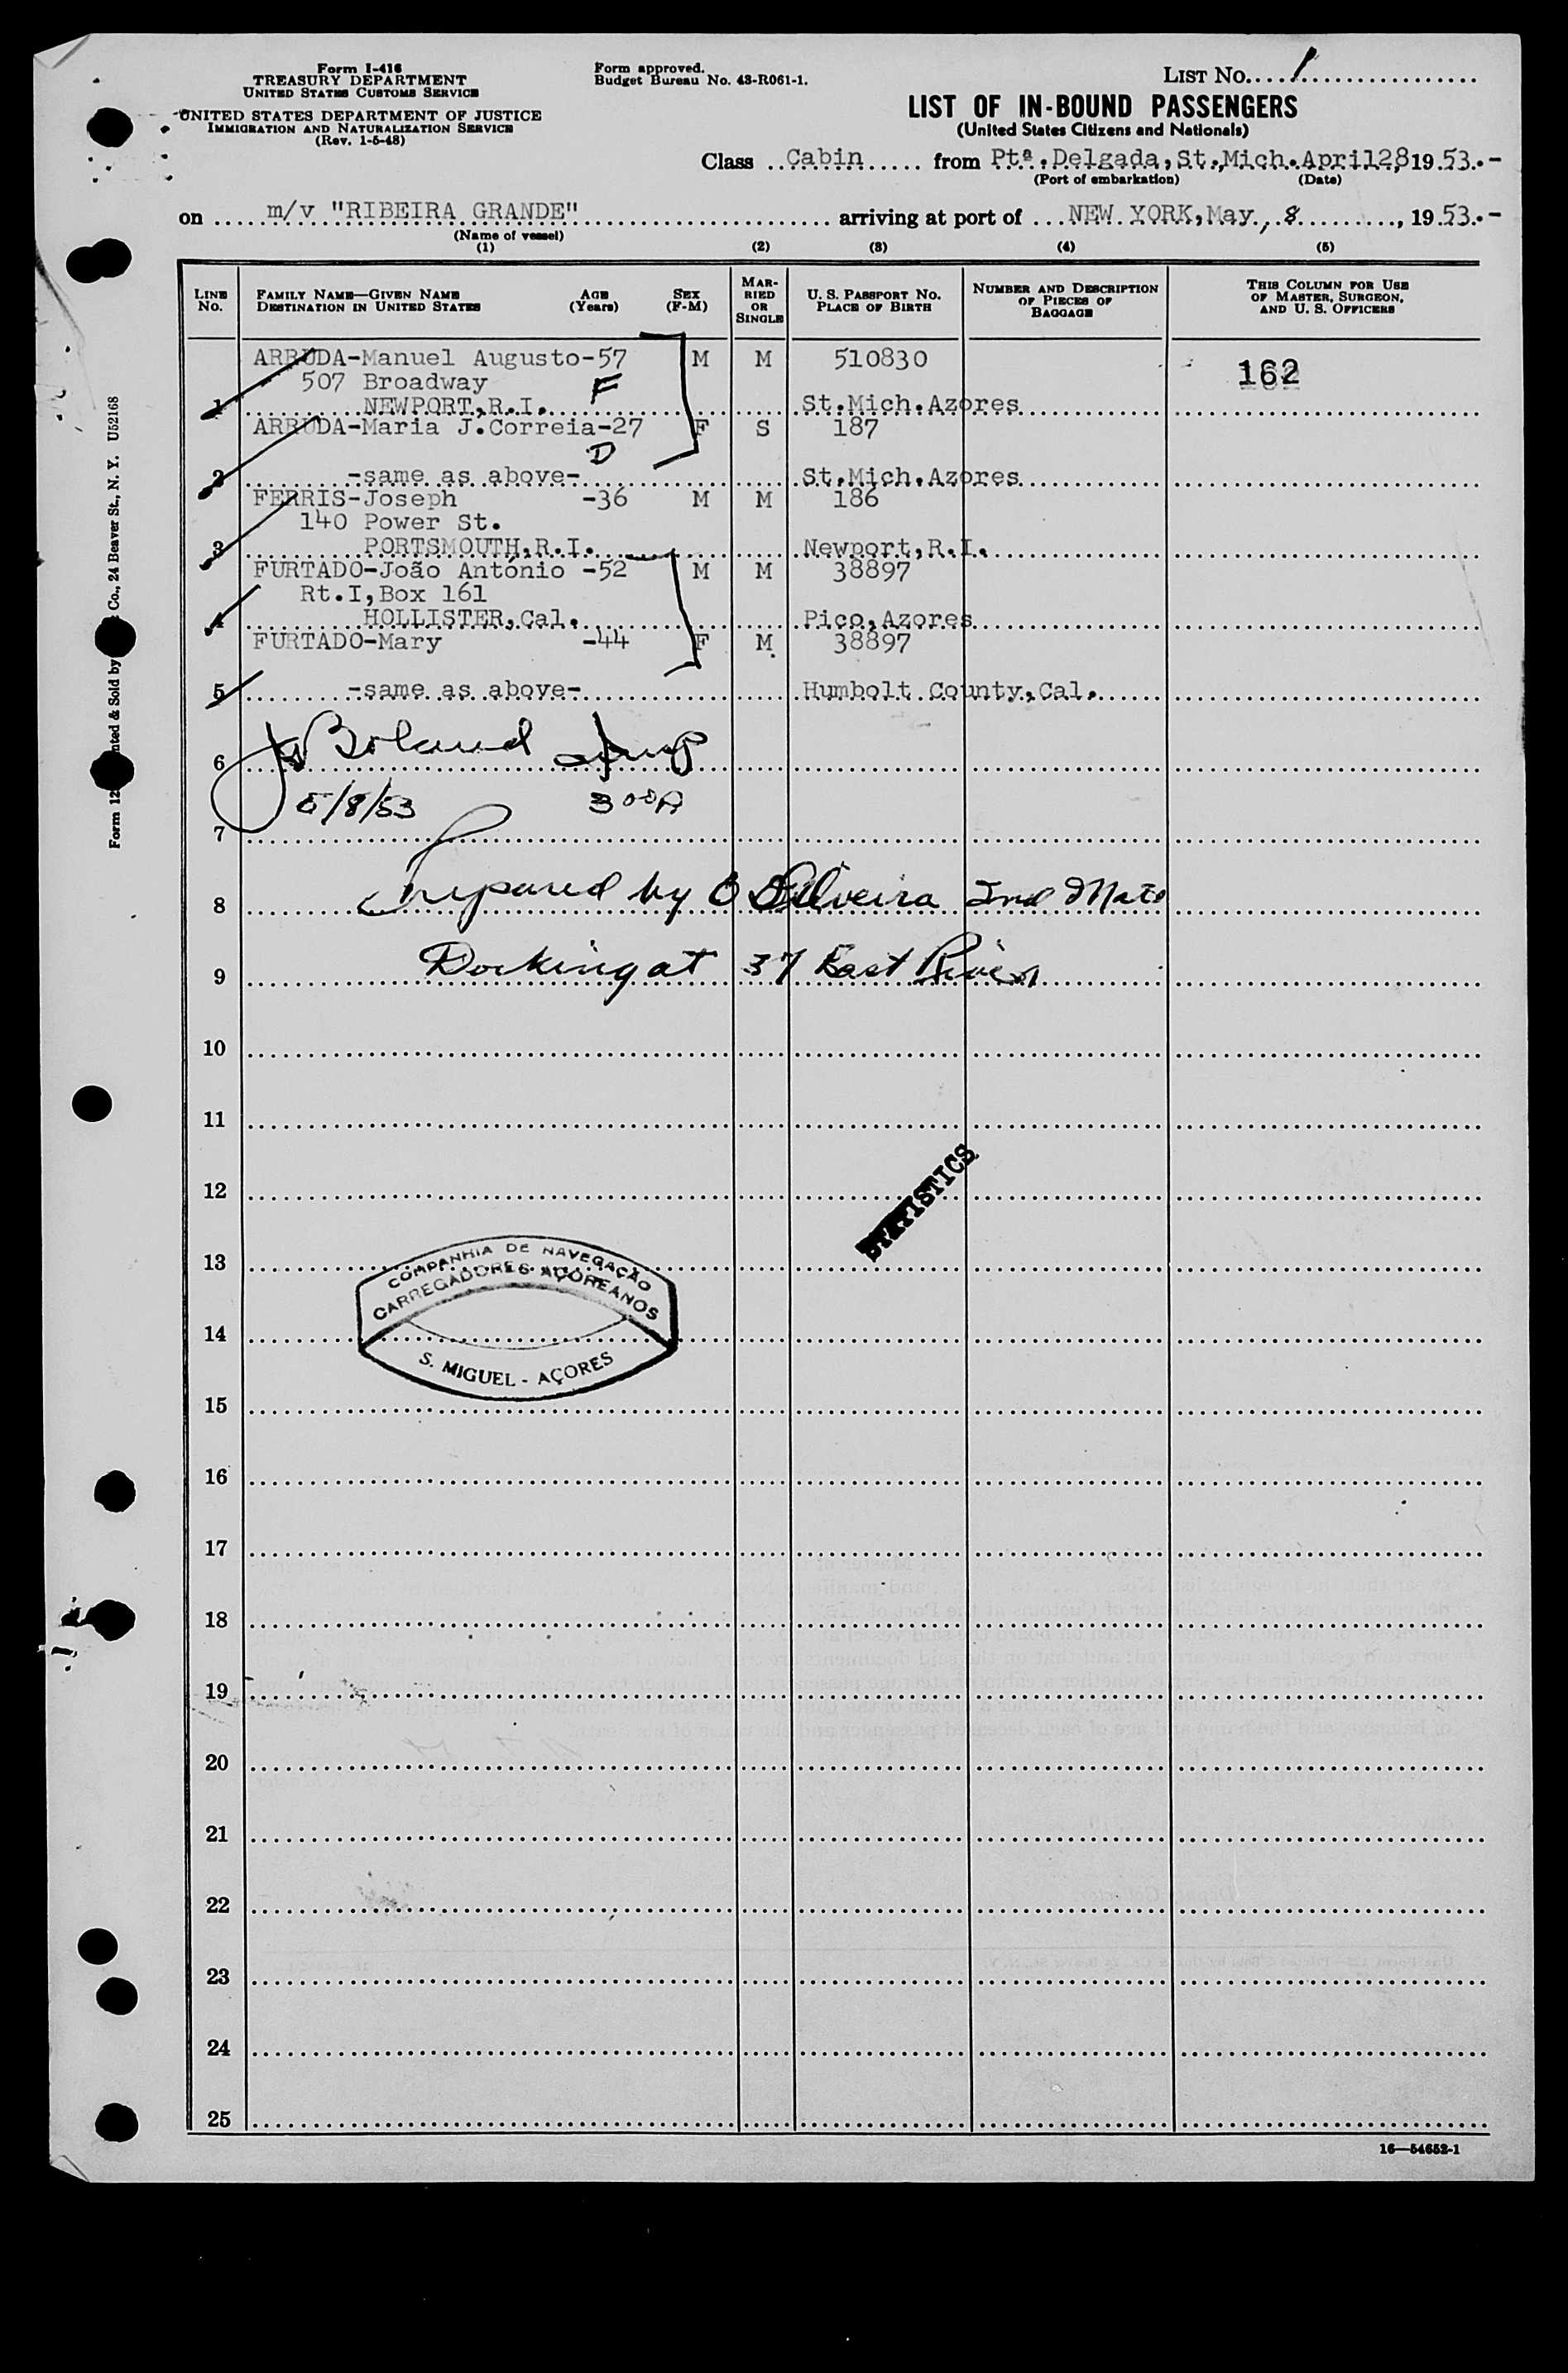 Form I-416
TREASURY DEPARTMENT
UNITED STATES CUSTOMS SERVICE
UNITED STATES DEPARTMENT OF JUSTICE
IMMIGRATION AND NATURALIZATION SERVICE
(Rev. 1-5-48)
Form approved.
Budget Bureau No. 43-R061-1.
LIST NO. 1
LIST OF IN-BOUND PASSENGERS
(United States Citizens and Nationals)
Class Cabin from Ptª.Delgada,St.,Mich.April28,1953.-
(Port of embarkation) (Date)
on m/v "RIBEIRA GRANDE" arriving at port of NEW YORK,May, 8, 1953.-
(Name of vessel)
(1) (2) (3) (4) (5)
LINE NO.
FAMILY NAME—GIVEN NAME AGE SEX
DESTINATION IN UNITED STATES (Years) (F-M)
MARRIED OR SINGLE
U. S. PASSPORT NO.
PLACE OF BIRTH
NUMBER AND DESCRIPTION
OF PIECES OF
BAGGAGE
THIS COLUMN FOR USE
OF MASTER, SURGEON,
AND U. S. OFFICERS
ARRUDA-Manuel Augusto-57 M M 510830 162
507 Broadway F
1 NEWPORT,R.I. St.Mich.Azores
ARRUDA-Maria J.Correia-27 F S 187
D
2 -same as above- St.Mich.Azores
FERRIS-Joseph -36 M M 186
140 Power St.
3 PORTSMOUTH,R.I. Newport,R.I.
FURTADO-João António -52 M M 38897
Rt.I,Box 161
4 HOLLISTER,Cal. Pico,Azores
FURTADO-Mary -44 F M. 38897
5 -same as above- Humbolt County,Cal.
6 Boland
5/8/53 3 00
7
8 Prepared by Silveira 2nd Mate
9 Docking at 37 East River
10
11
12
STATISTICS
13
COMPANHIA DE NAVEGAÇÃO
CARREGADORES AÇOREANOS
14
S. MIGUEL - AÇORES
15
16
17
18
19
20
21
22
23
24
25
16—54652-1
Co., 24 Beaver St., N. Y. U52168